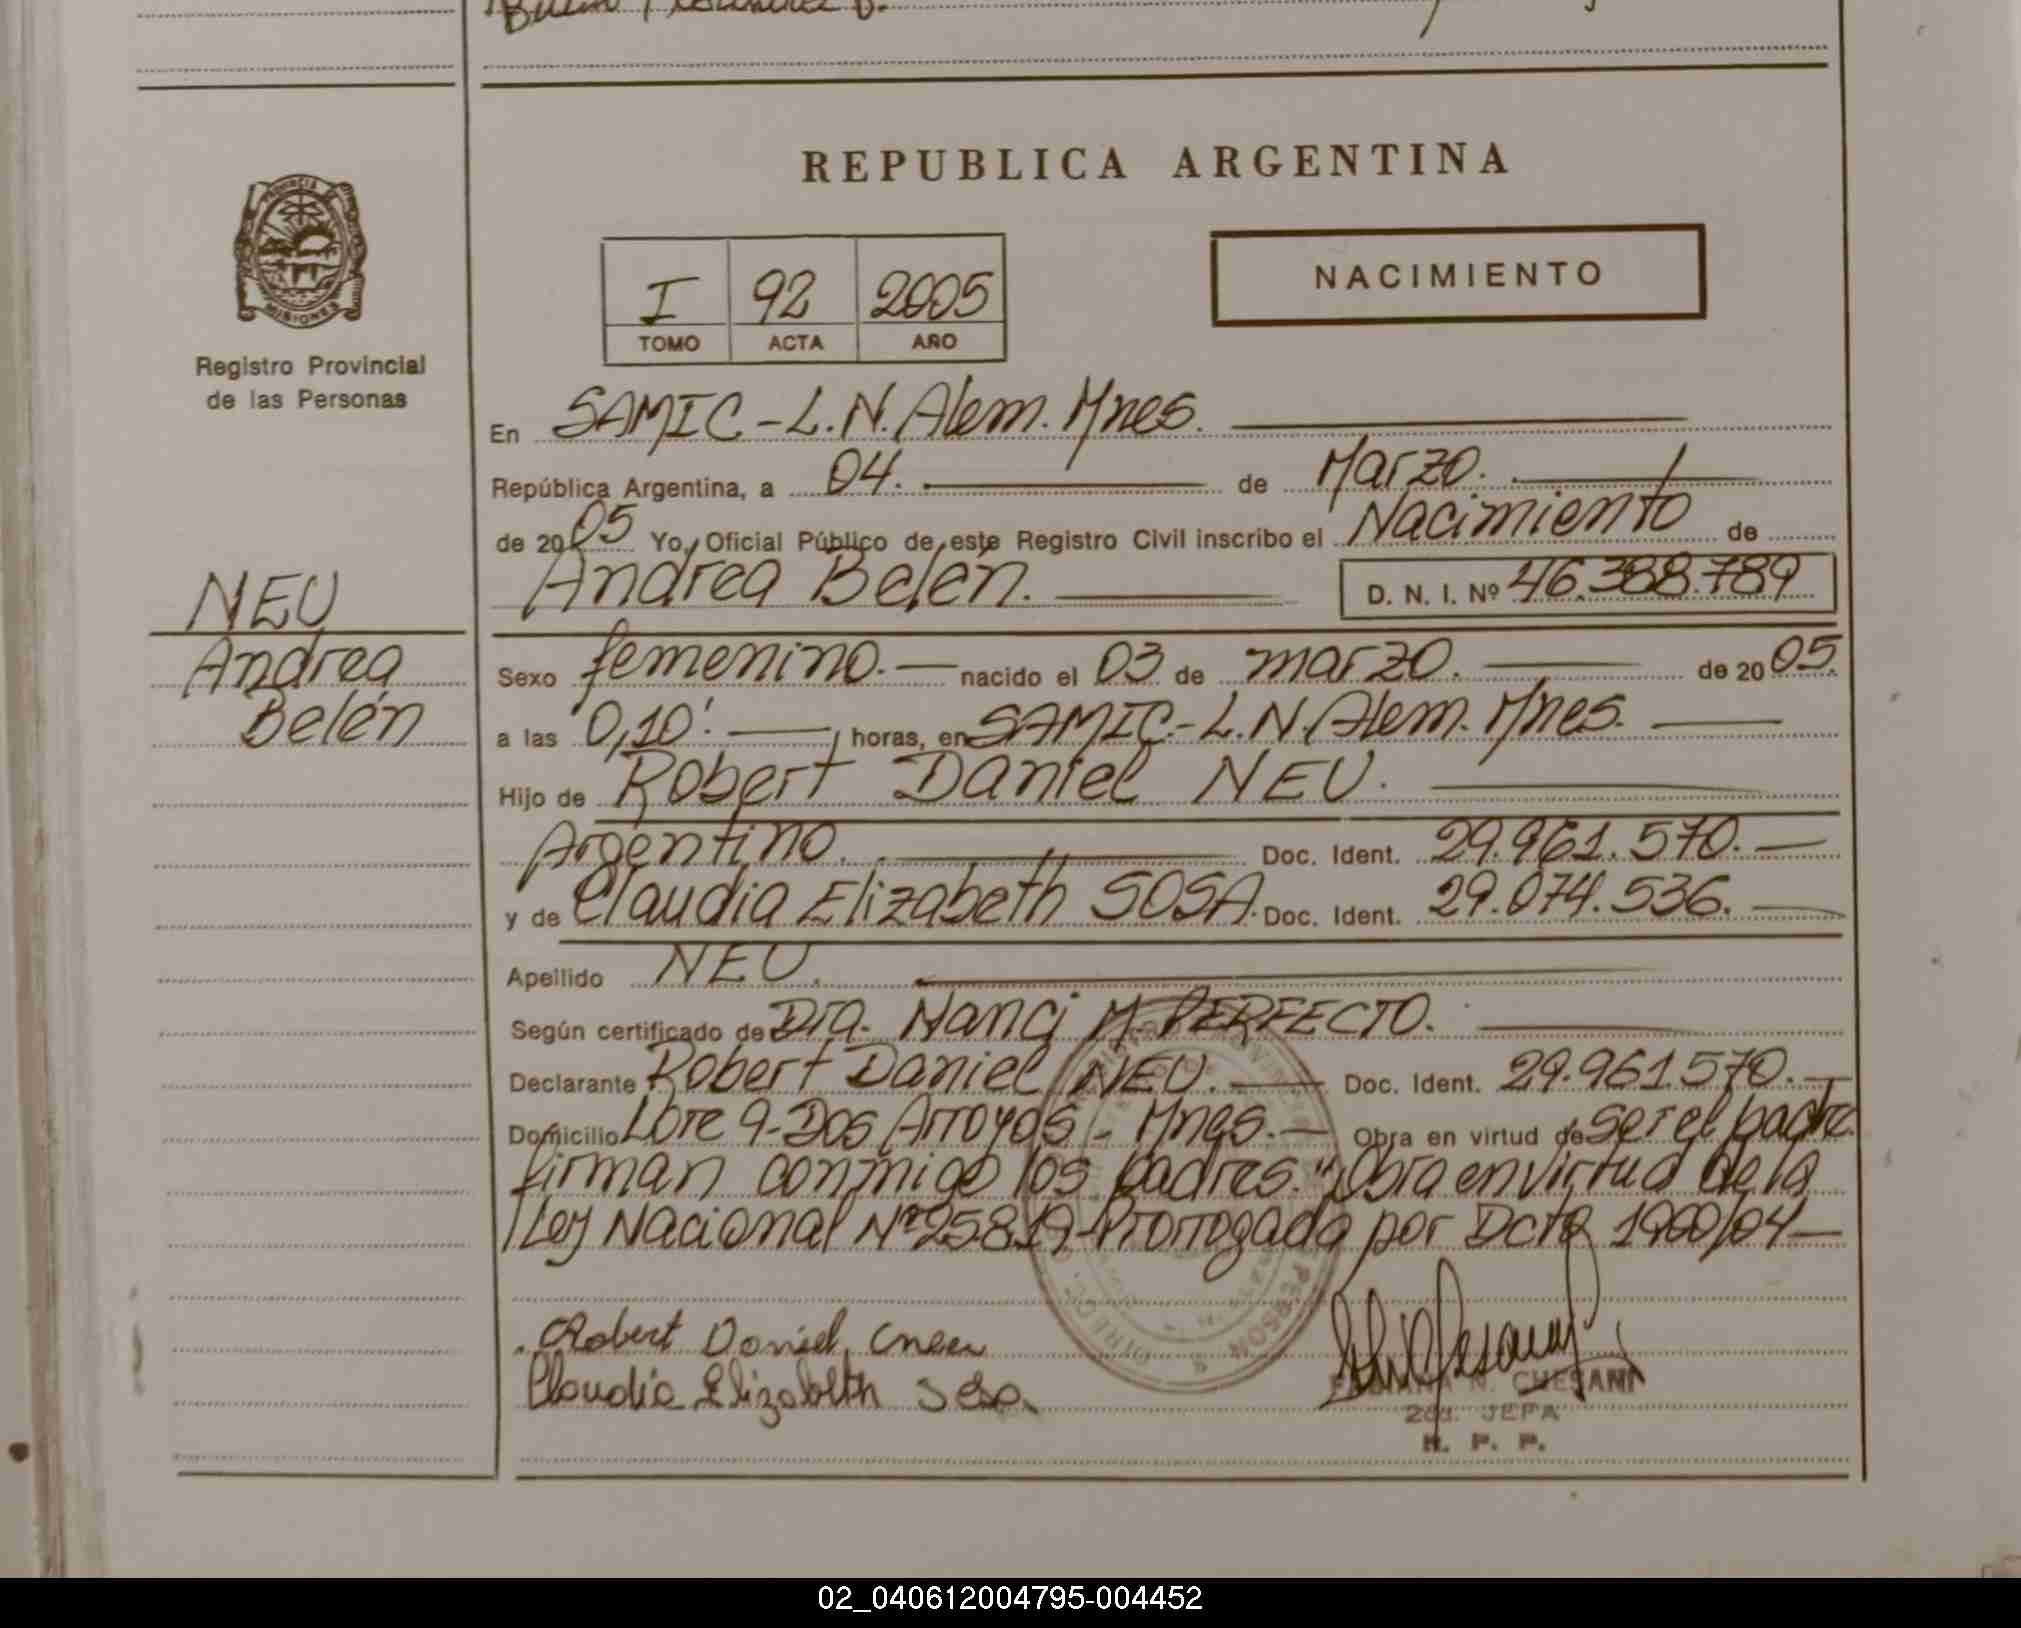 REPUBLICA ARGENTINA
PROVINCIA DE
MISIONES
Registro Provincial
de las Personas
I 92 2005
TOMO ACTA AÑO
NACIMIENTO
En SAMIC-L.N.Alem. Mnes.
República Argentina, a 04. de Marzo.
de 2005 Yo, Oficial Público de este Registro Civil inscribo el Nacimiento de
Andrea Belén. D. N. I. Nº 46.388.789
NEU
Andrea
Belén
Sexo femenino. nacido el 03 de marzo. de 2005.
a las 0,10'. horas, en SAMIC.-L.N.Alem. Mnes.
Hijo de Robert Daniel NEU.
Argentino. Doc. Ident. 29.961.570.
y de Claudia Elizabeth SOSA. Doc. Ident. 29.074.536.
Apellido NEU.
Según certificado de Dra. Nanci M. PERFECTO.
Declarante Robert Daniel NEU. Doc. Ident. 29.961.570.
Domicilio Lote 9-Dos Arroyos - Mnes. Obra en virtud de ser el padre
firman conmigo los padres." Obra en virtud de la
Ley Nacional Nº25819-Prorrogada por Dcto 1900/04
Robert Daniel Neu
Claudia Elizabeth Sosa.
FABIANA N. CHESANI
2da. JEFA
R. P. P.
02_040612004795-004452